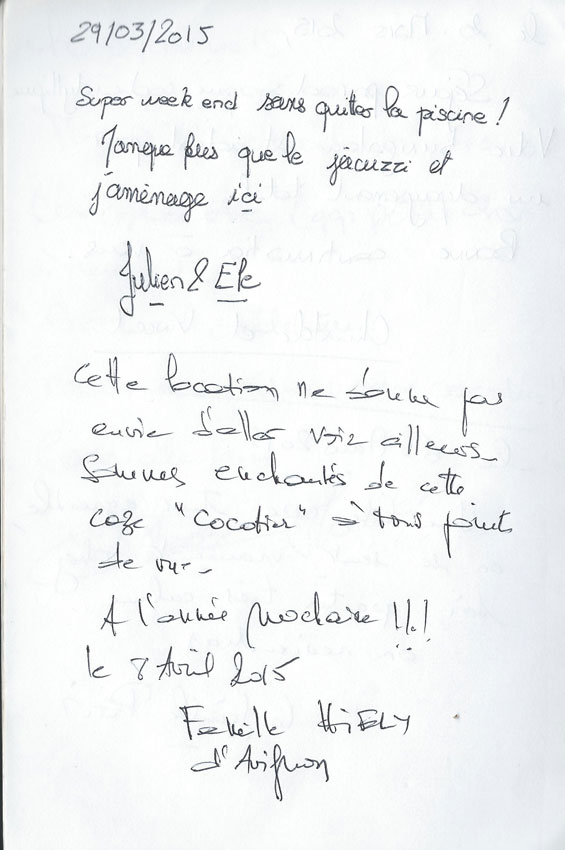 29/03/2015
Super week end sans quitter la piscine !
Manque plus que le jacuzzi et
j'aménage ici
Julien & Elé
Cette location ne donne pas
envie d'aller voir ailleurs
Sommes enchantés de cette
caze "Cocotier" à tous points
de vue
A l'année prochaine !!!
le 8 Avril 2015
Famille HIELY
d'Avignon